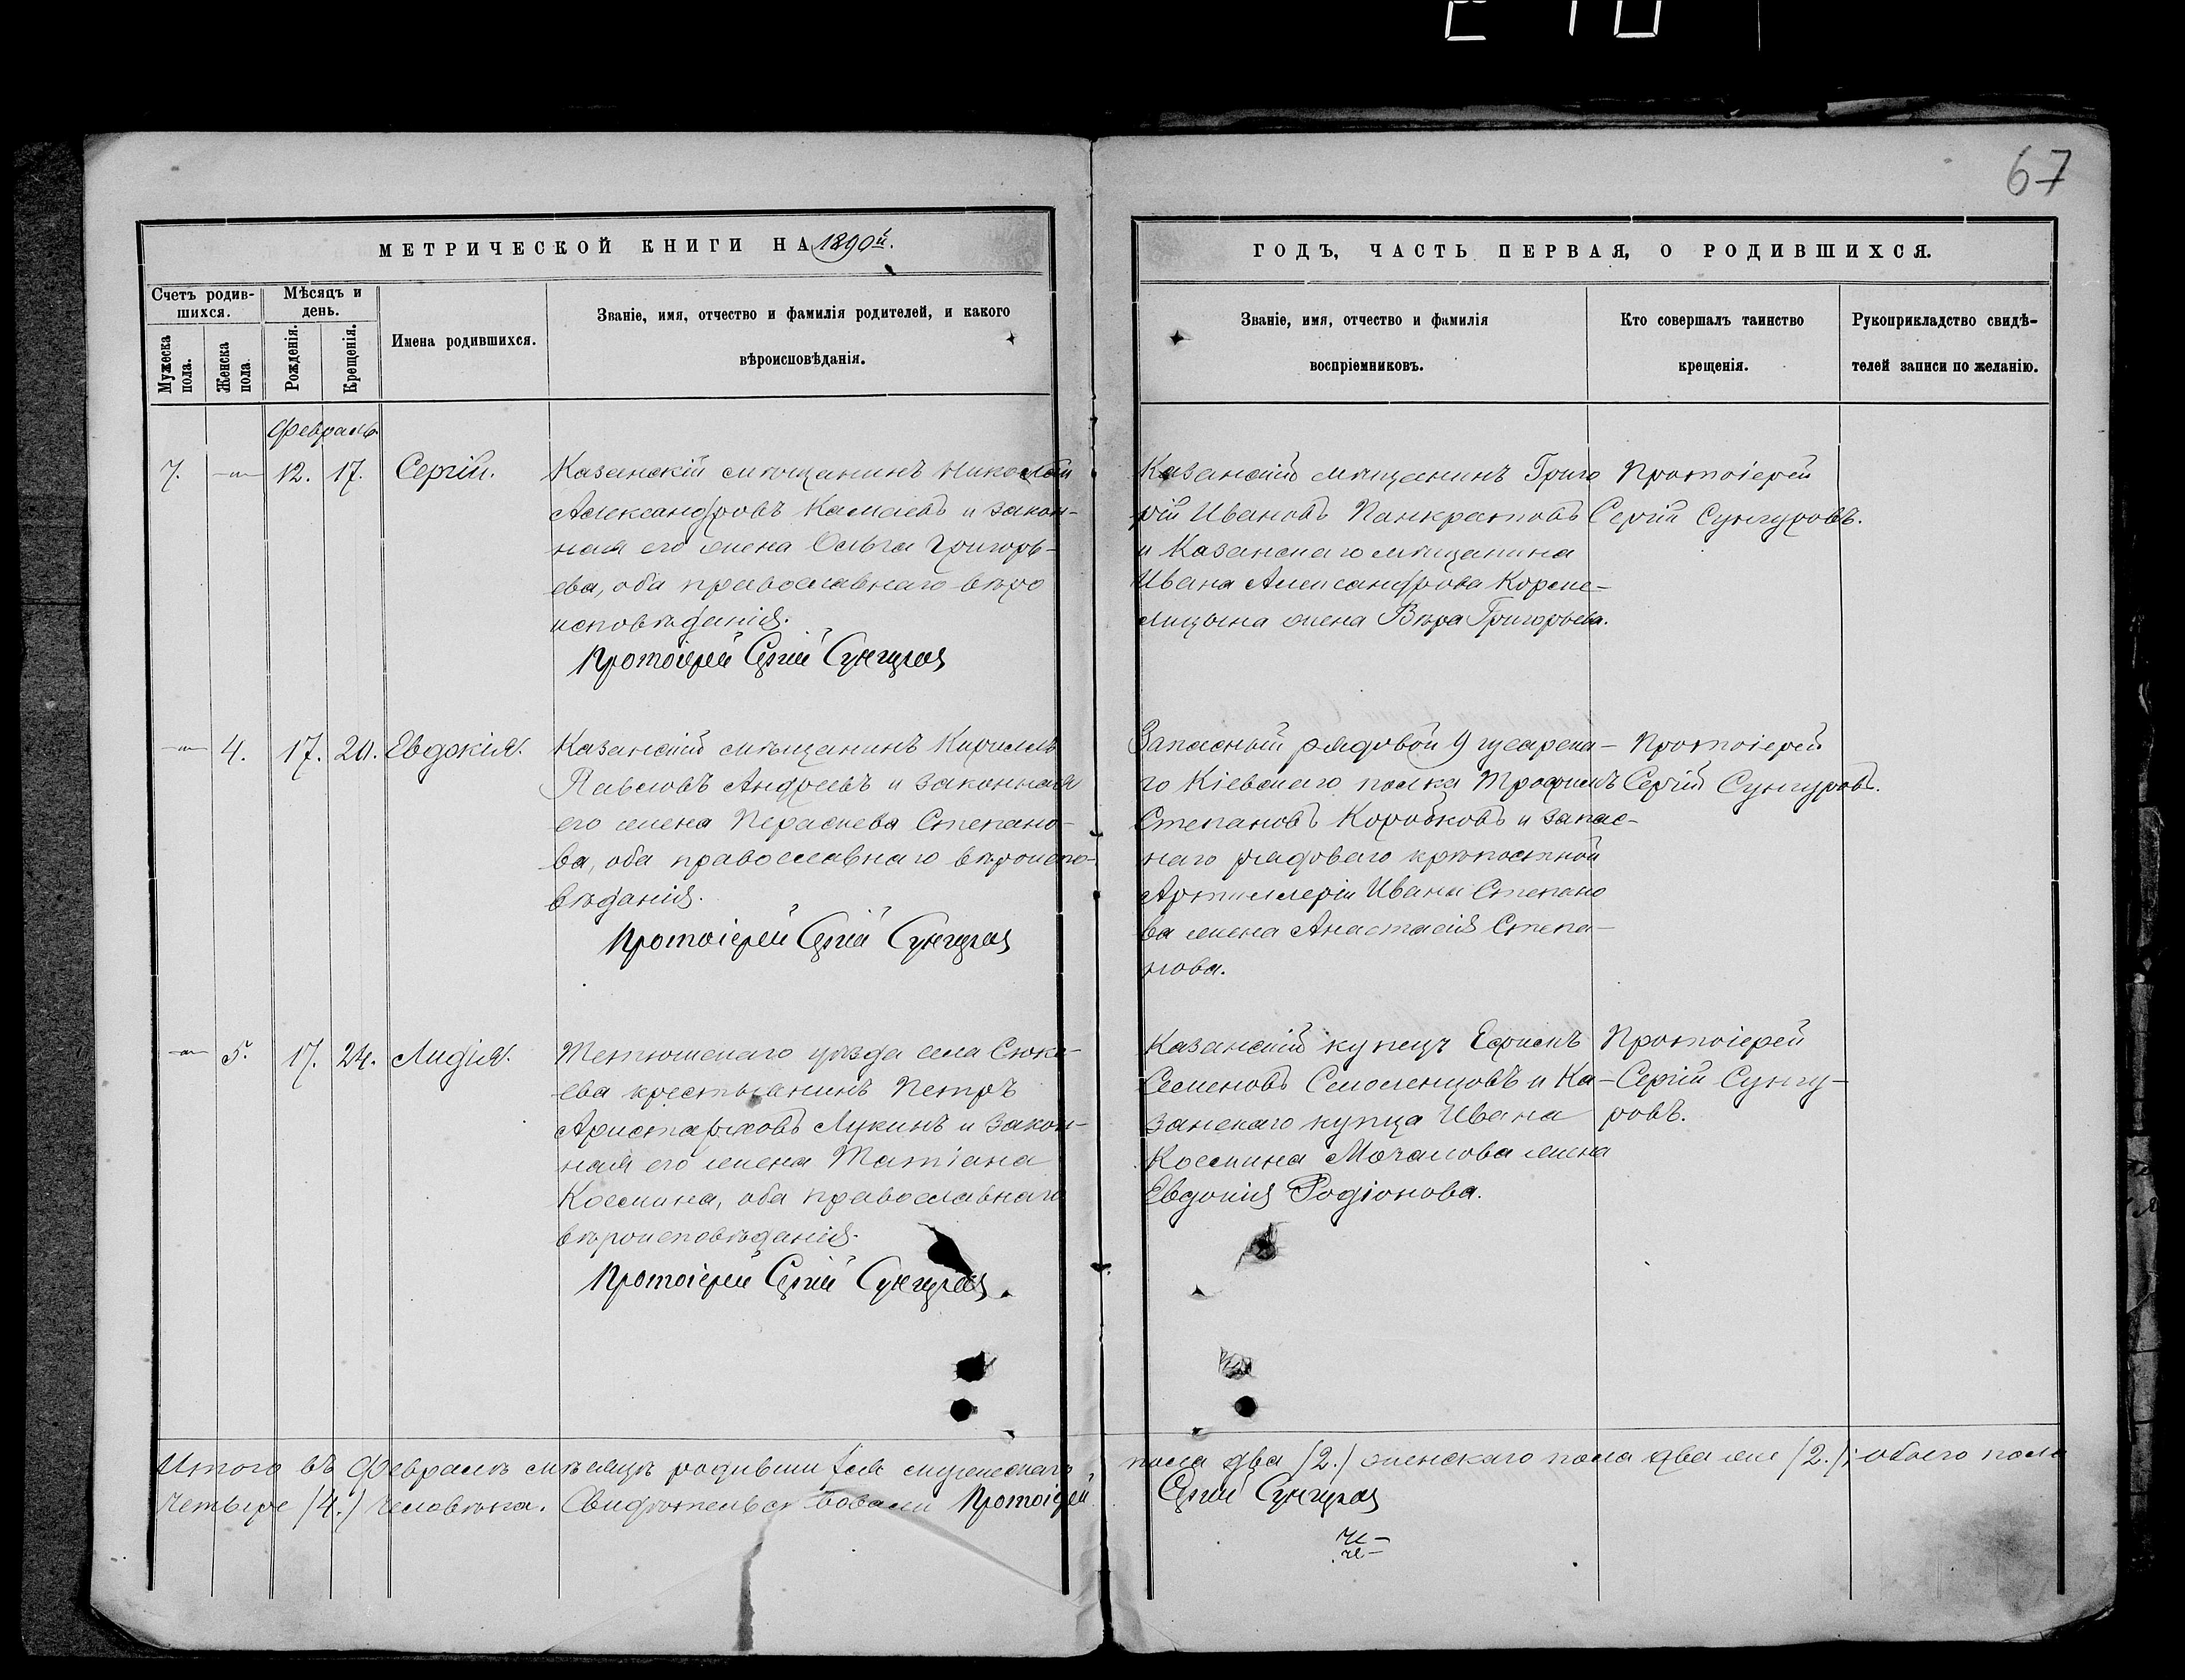 67
МЕТРИЧЕСКОЙ КНИГИ НА 1890й.
ГОДЪ, ЧАСТЬ ПЕРВАЯ, О РОДИВШИХСЯ.
Счетъ родив-
шихся.
Мужеска пола.
Женска пола
Мѣсяцъ и
день.
Рожденія.
Крещенія.
Имена родившихся.
Званіе, имя, отчество и фамилія родителей, и какого
вѣроисповѣданія.
Званіе, имя, отчество и фамилія
воспріемниковъ.
Кто совершалъ таинство
крещенія.
Рукоприкладство свидѣ-
телей записи по желанію.
Февраль
7. 12. 17. Сергій.
Казанскій мѣщанинъ Николай
Александровъ Камаевъ и закон-
ная его жена Ольга Григорь-
ева, оба православнаго вѣро
исповѣданія.
Протоіерей Сергій Сунгуровъ
Казанскій мѣщанинъ Григо
рій Ивановъ Панкратовъ
и Казанскаго мѣщанина
Ивана Александрова
жена Вѣра Григорьева.
Протоіерей
Сергій Сунгуровъ.
4. 17. 20. Евдокія.
Казанскій мѣщанинъ Кириллъ
Павловъ Андреевъ и законная
его жена Параскева Степано-
ва, оба православнаго вѣроиспо-
вѣданія.
Протоіерей Сергій Сунгуровъ
Запасный рядовой 9 гусарска-
го Кіевскаго полка Трофимъ
Степановъ Коробковъ и запас-
наго рядоваго крѣпостной
Артиллеріи Ивана Степано
ва жена Анастасія Степа-
нова.
Протоіерей
Сергій Сунгуровъ.
5. 17. 24. Лидія.
Тетюшскаго уѣзда села Сюке-
ева крестьянинъ Петръ
Аристарховъ Лукинъ и закон-
ная его жена Татіана
Космина, оба православнаго
вѣроисповѣданія.
Протоіерей Сергій Сунгуровъ.
Казанскій купецъ Ефимъ
Семеновъ Смоленцовъ и Ка-
занскаго купца Ивана
Космина Мочалова жена
Евдокія Родіонова.
Протоіерей
Сергій Сунгу-
ровъ.
Итого въ Февралѣ мѣсяцѣ родившихся мужескаго пола два /2./ женскаго пола два же /2./; обоего пола
четыре /4./ человѣка. Свидѣтельствовали Протоіерей Сергій Сунгуровъ